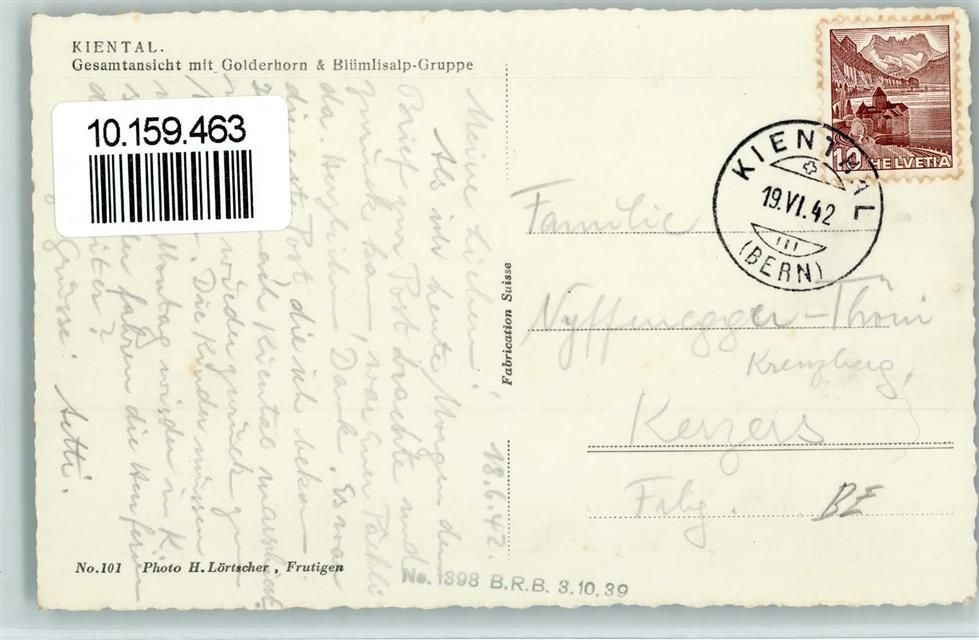 KIENTAL.
Gesamtansicht mit Golderhorn & Blümlisalp-Gruppe
10.159.463
18.6.42.
Meine Lieben!
Als ich heute Morgen den
Brief zur Post brachte und
zurück kam, war Euer Päckli
da. Herzl. Dank. Es war
die erste Post die ich bekom
nach Kiental marschiert
wieder zurück zu
Die Kinder müssen
Montag wieder in K.
fahren die Heuferien
weiter?
Grüsse. Hetti.
No.101 Photo H. Lörtscher, Frutigen
No. 1398 B.R.B. 3.10.39
Fabrication Suisse
10 HELVETIA
KIENTHAL
19.VI.42
(BERN)
Familie
Nyffenegger-Thöni
Kreuzberg,
Kerzers
Frbg.
BE